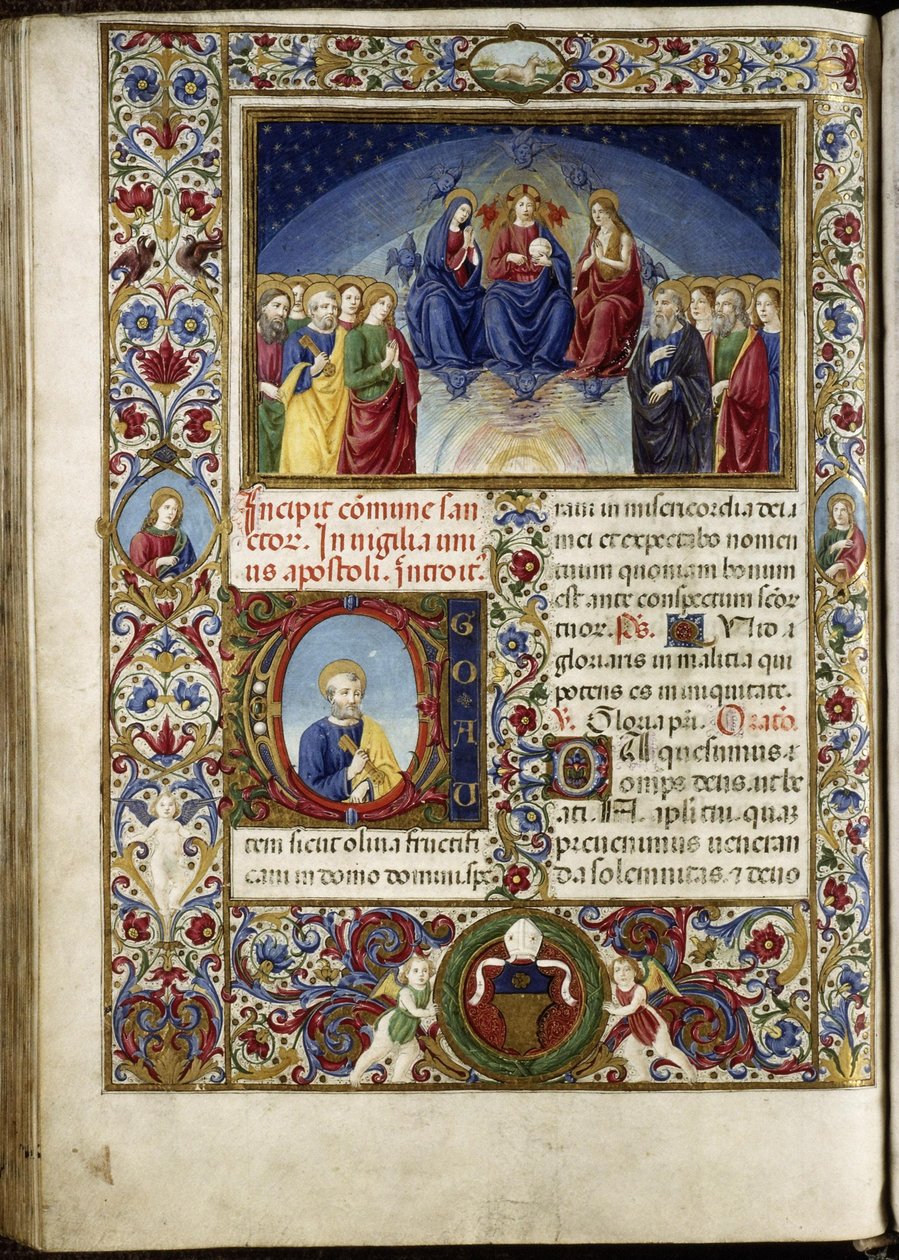 Incipit cõmune san
ctor. In uigilia uni
us apostoli. Introit.
EGO AU
tem sicut oliua fructifi
caui in domo domini. spe
raui in misericordia dei
mei et expectabo nomen
tuum quoniam bonum
est ante conspectum scõr
tuor. Ps. Quid
gloriaris in malicia qui
potens es in iniquitate.
V. Gloria pri. Oratio
DA quesumus
omps deus. ut be
ati .N. apli tui. quaz
preuenimus ueneran
da solennitas. 7 deuo